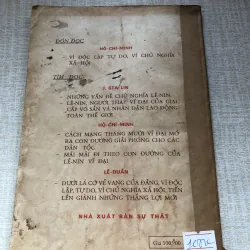 ĐÓN ĐỌC
HỒ-CHÍ-MINH
— VÌ ĐỘC LẬP TỰ DO, VÌ CHỦ NGHĨA
XÃ HỘI
TÌM ĐỌC
J. STA-LIN
— NHỮNG VẤN ĐỀ CHỦ NGHĨA LÊ-NIN
— LÊ-NIN, NGƯỜI THẦY VĨ ĐẠI CỦA GIAI
CẤP VÔ SẢN VÀ NHÂN DÂN LAO ĐỘNG
TOÀN THẾ GIỚI
HỒ-CHÍ-MINH
— CÁCH MẠNG THÁNG MƯỜI VĨ ĐẠI MỞ
RA CON ĐƯỜNG GIẢI PHÓNG CHO CÁC
DÂN TỘC
— MÃI MÃI ĐI THEO CON ĐƯỜNG CỦA
LÊ-NIN VĨ ĐẠI
LÊ-DUẨN
— DƯỚI LÁ CỜ VẺ VANG CỦA ĐẢNG, VÌ ĐỘC
LẬP, TỰ DO, VÌ CHỦ NGHĨA XÃ HỘI, TIẾN
LÊN GIÀNH NHỮNG THẮNG LỢI MỚI
NHÀ XUẤT BẢN SỰ THẬT
Giá